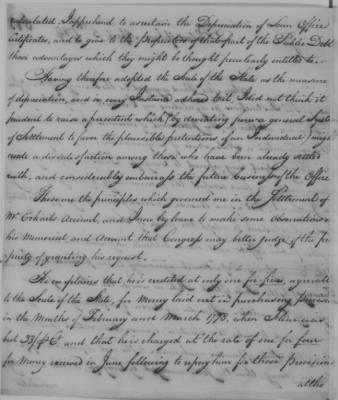 calculated I apprehend to ascertain the Depreciation of Loan Office
Certificates, and to give to the Proprietors of that part of the Public Debt
those advantages which they might be thought peculiarly entitled to.
Having therefore adopted the Scale of the State as the measure
of depreciation, and in every Instance adhered to it, I did not think it
prudent to raise a precedent which (by deviating from a general Scale
of Settlement to favor the plausible pretentions of an Individual) might
create a dissatisfaction among those who have been already settled
with, and considerably embarrass the future business of the Office
These are the principles which governed me in the Settlement of
Mr Eckarts Account, and I now beg leave to make some Observations
his Memorial and Account that Congress may better judge of the pro
priety of granting his request.
He complains that he is credited at only one for five, agreeable
to the Scale of the State, for Money laid out in purchasing Provisions
in the Months of February and March 1778, when Flour was
but 33/ C and that he is charged at the rate of one for four
for Money received in June following to repay him for those Provisions
at the